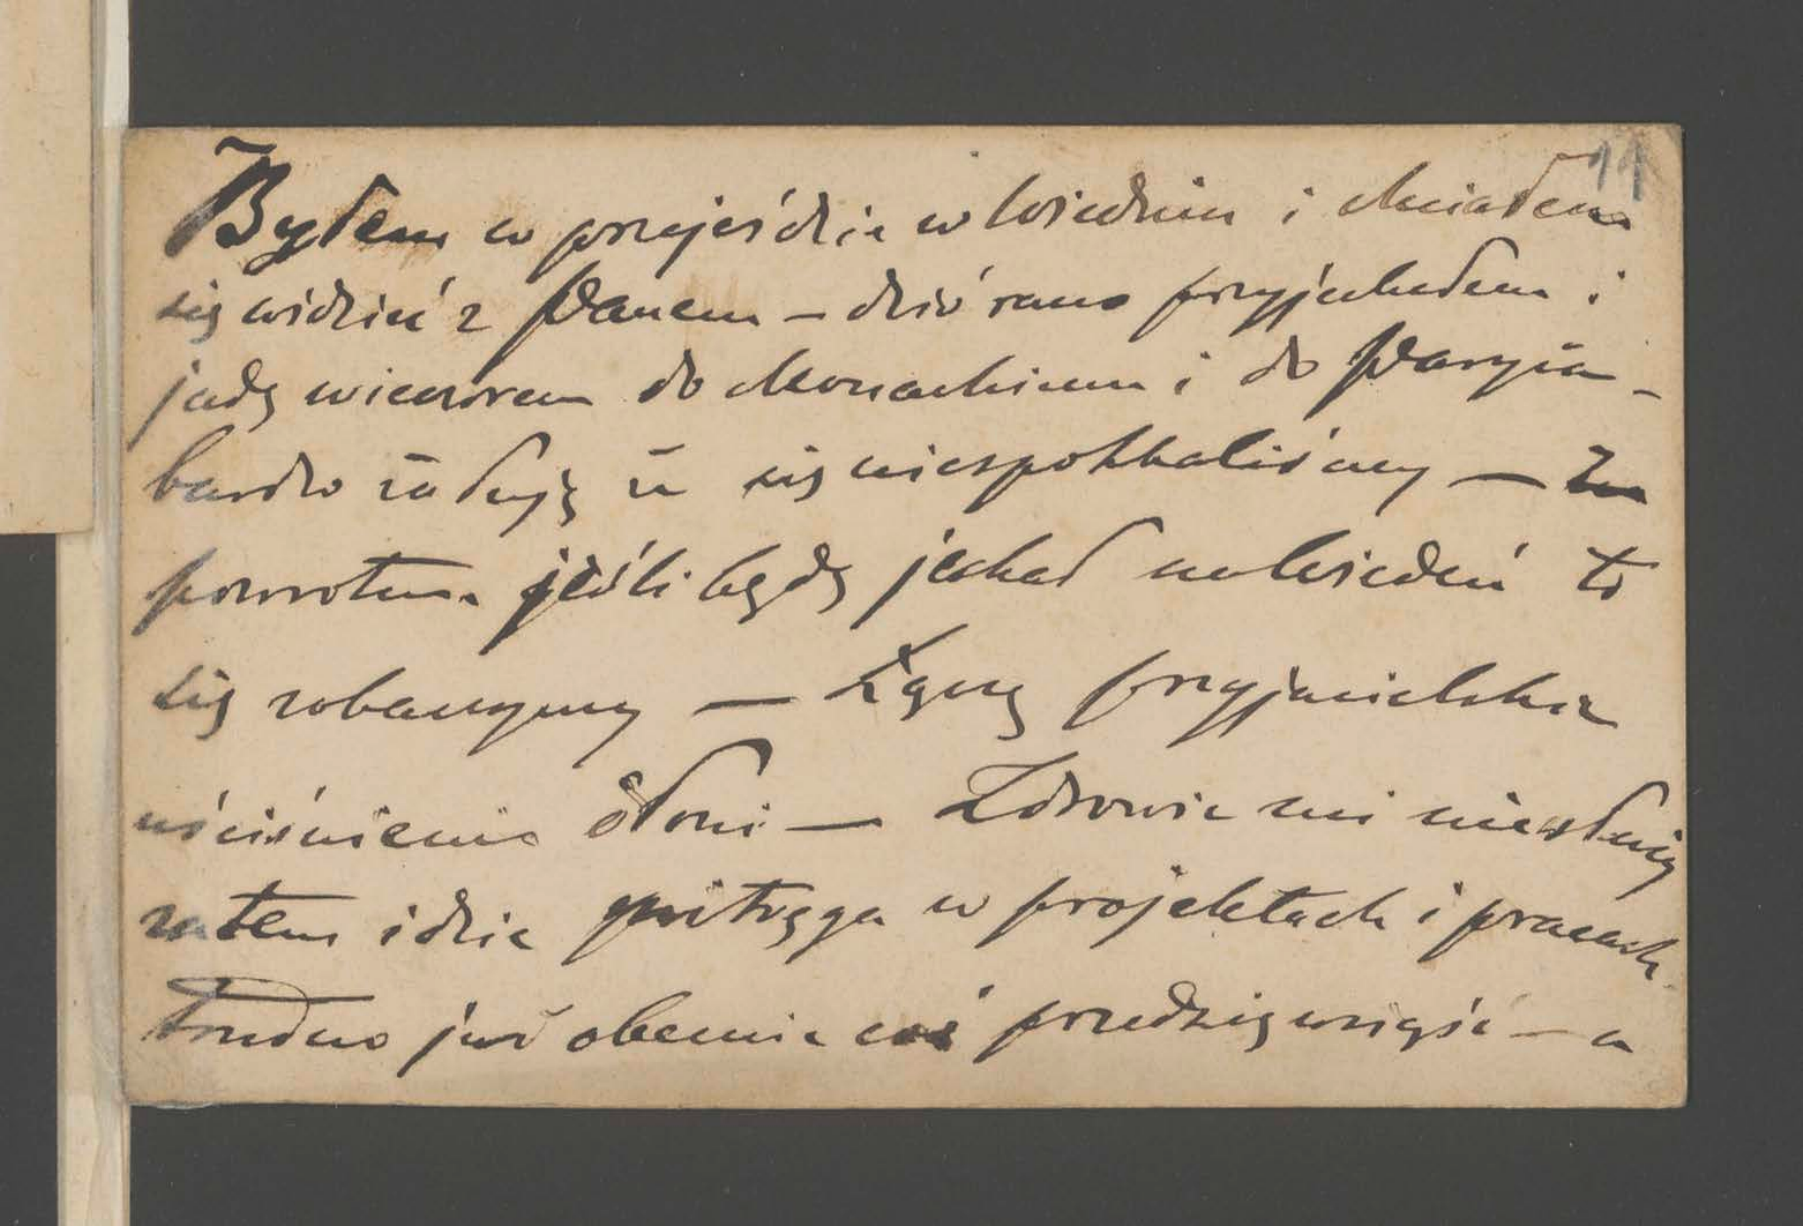 11
Byłem w przejeździe w Wiedniu i chciałem
się widzieć z Panem – dziś rano przyjechałem i
jadę wieczorem do Monachium i do Paryża –
bardzo żałuję że się niespotkaliśmy – Za
powrotem jeśli będę jechał na Wiedeń to
się zobaczymy – Łączę przyjacielskie
uściśnienie dłoni – Zdrowie mi niesłuży
zatem idzie mitręga w projektach i pracach
trudno już obecnie coś przedsięwziąść – a